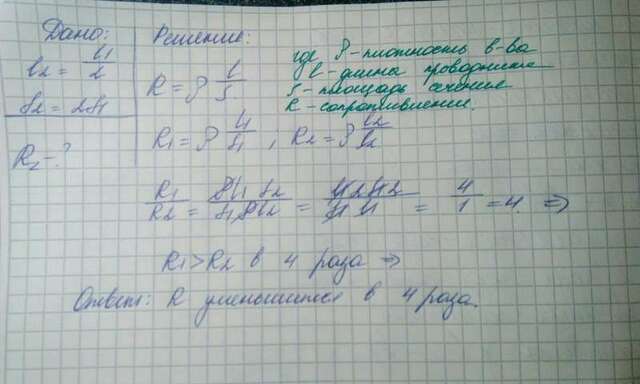 Дано:
l₂ = l₁/2
S₂ = 2S₁
R₂ - ?
Решение:
R = ρ l/S
где ρ - плотность в-ва
l - длина проводника
S - площадь сечения
R - сопротивление.
R₁ = ρ l₁/S₁ , R₂ = ρ l₂/S₂
R₁/R₂ = ρl₁ S₂/S₁ρl₂ = l₁2S₁2/S₁ l₁ = 4/1 = 4 ⇒
R₁ > R₂ в 4 раза ⇒
Ответ: R уменьшится в 4 раза.